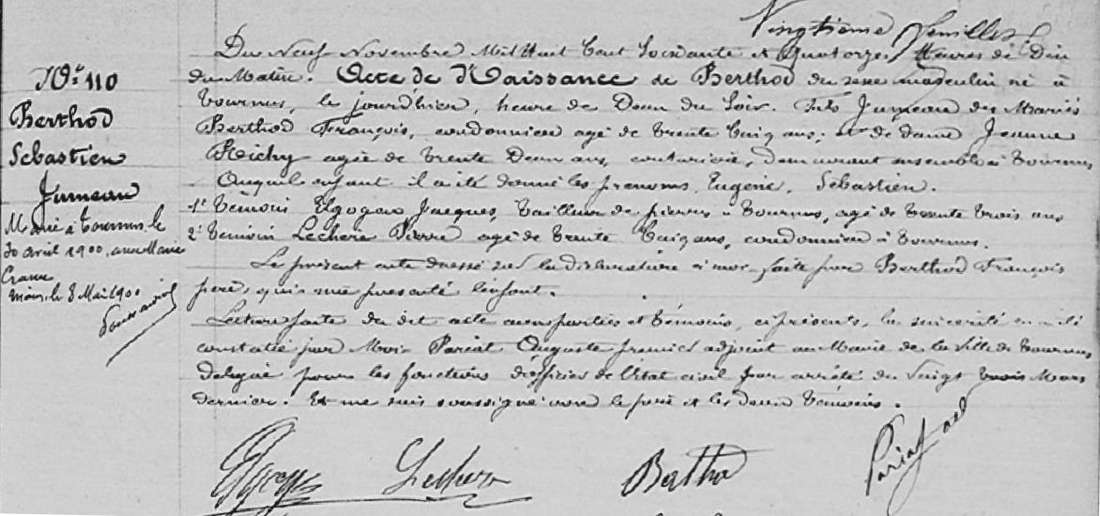 Vingtième feuillet
Du Neuf Novembre Mil Huit Cent Soixante et Quatorze, Heures de Dix
du Matin. Acte de Naissance de Berthod du sexe masculin né à
Tournus, le jourd'hier, heure de Deux du Soir. Fils Jumeau des Mariés
Berthod François, cordonnier agé de trente Cinq ans, et de dame Jeanne
Richy agée de trente Deux ans, couturière, demeurant ensemble à Tournus
Auquel enfant il a été donné les prénoms Eugène, Sébastien.
1er Témoin Jacques, tailleur de pierres à Tournus, agé de trente trois ans
2e Temoin Lechere Pierre agé de trente Cinq ans, cordonnier à Tournus.
Le présent acte dressé sur la déclaration à moi faite par Berthod François
père, qui m'a presenté l'enfant.
Lecture faite du dit acte aux parties et témoins, ci présents, la sincérité en a été
constatée par Moi Auguste premier adjoint au Maire de la Ville de Tournus
délégué pour les fonctions d'officier de l'Etat civil par arrêté du Vingt trois Mars
dernier. Et me suis soussigné avec le père et les deux témoins.
No 110
Berthod
Sebastien
Jumeau
Marié à Tournus le
30 avril 1900, avec Marie
le 8 Mai 1900
Lechere
Bertho